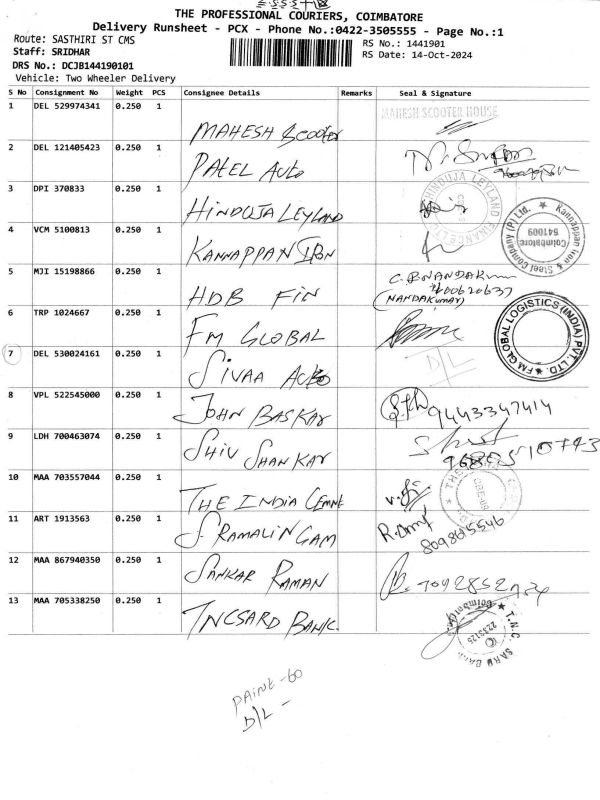 THE PROFESSIONAL COURIERS, COIMBATORE
Delivery Runsheet - PCX - Phone No.:0422-3505555 - Page No.:1
Route: SASTHIRI ST CMS
RS No.: 1441901
Staff: SRIDHAR
RS Date: 14-Oct-2024
DRS No.: DCJB144190101
Vehicle: Two Wheeler Delivery
S No Consignment No Weight PCS Consignee Details Remarks Seal & Signature
1 DEL 529974341 0.250 1 MAHESH SCOOTER MAHESH SCOOTER HOUSE
2 DEL 121405423 0.250 1 PATEL Auto
3 DPI 370833 0.250 1 HINDUJA LEYLAND HINDUJA LEYLAND
4 VCM 5100813 0.250 1 KANNAPPAN IRON Kannappan Iron & Steel Company (P) Ltd. Coimbatore 641009
5 MJI 15198866 0.250 1 HDB FIN (NANDAKumar)
6 TRP 1024667 0.250 1 FM GLOBAL FM GLOBAL LOGISTICS (INDIA) PVT. LTD.
7 DEL 530024161 0.250 1 SIVAA Auto D/L
8 VPL 522545000 0.250 1 JOHN BASKAR 9443347414
9 LDH 700463074 0.250 1 SHIV SHANKAR
10 MAA 703557044 0.250 1 THE INDIA CEMNT
11 ART 1913563 0.250 1 S. RAMALINGAM 8098615546
12 MAA 867940350 0.250 1 SANKAR RAMAN
13 MAA 705338250 0.250 1 TNCSARD BANK. Coimbatore 2232125
D/L -